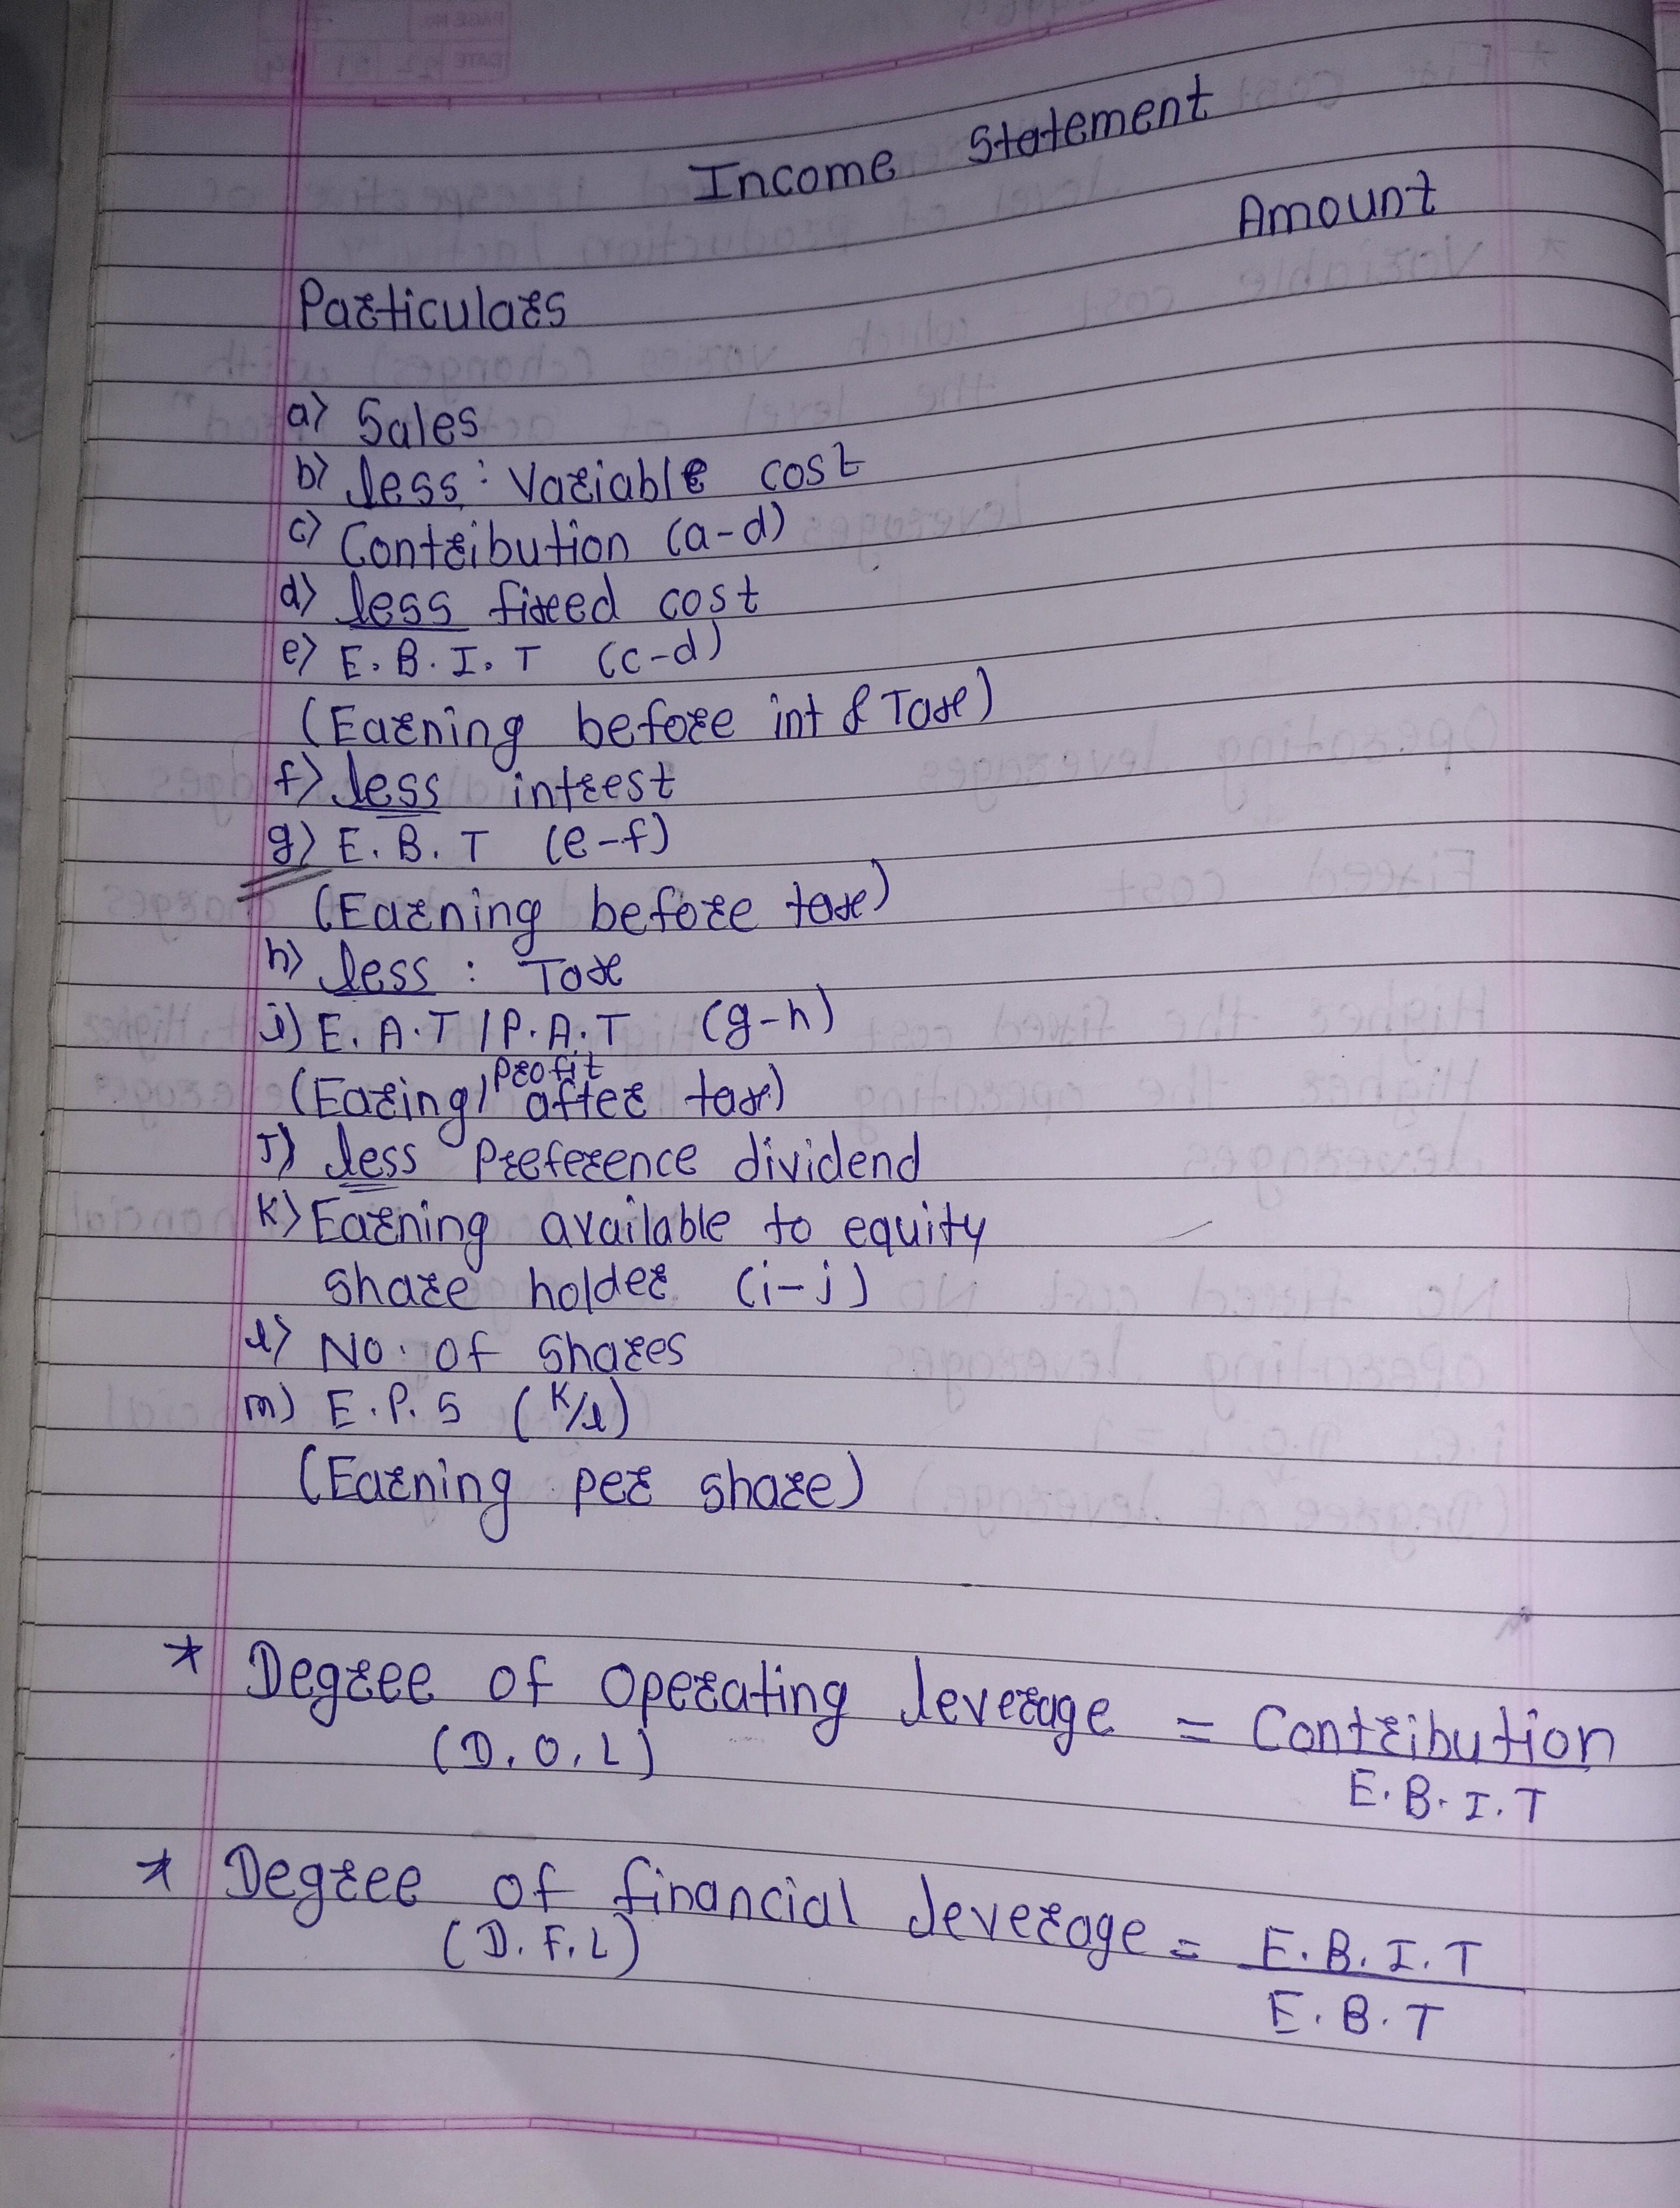 Income Statement
Amount
Particulars
a) Sales
b) less : Variable cost
c) Contribution (a-d)
d) less fixed cost
e) E.B.I.T (c-d)
(Earning before int & Tax)
f) less intrest
g) E.B.T (e-f)
(Earning before tax)
h) less : Tax
i) E.A.T/P.A.T (g-h)
(Earing/Profit after tax)
J) less Preference dividend
K) Earning available to equity
share holder (i-j)
l) No. of shares
m) E.P.S (K/l)
(Earning per share)
* Degree of operating leverage = Contribution
(D.O.L) E.B.I.T
* Degree of financial leverage = E.B.I.T
(D.F.L) E.B.T